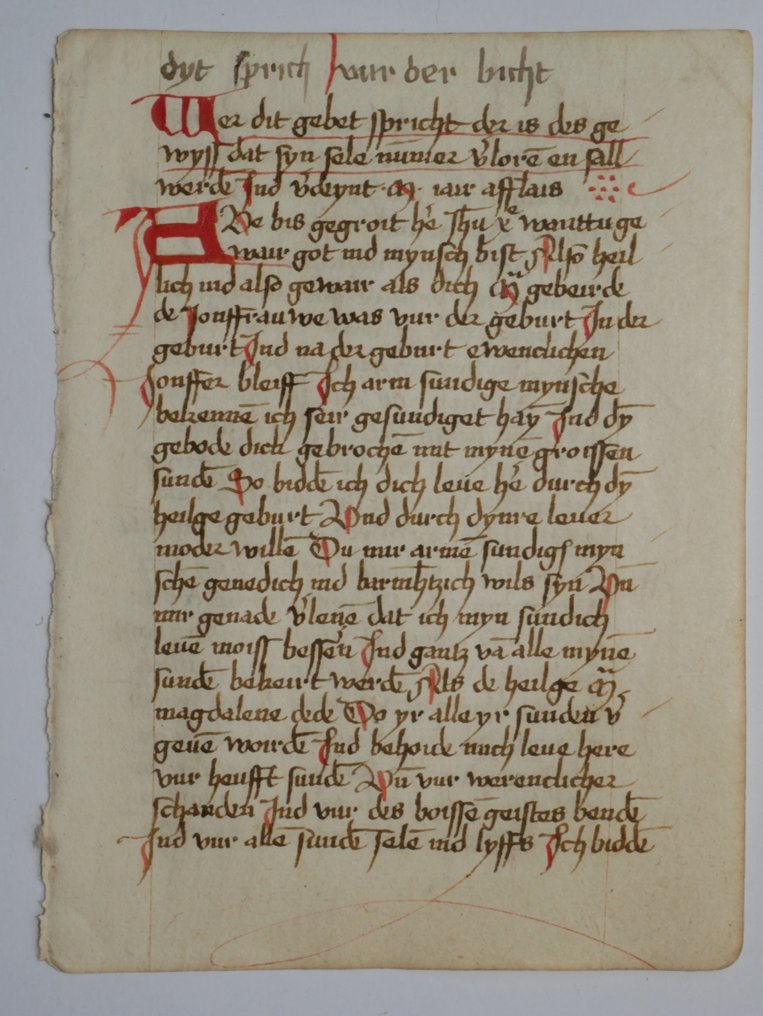 dyt sprich vur der bicht
Wer dit gebet spricht der is des ge
wyss dat syn sele nūmer v̓lorē en sall
werdē Ind v̓deynt · iair afflais
AVe bis gegroit hē Jhū xp̄e warttu ge
wair got ind mynsch bist Also heil
lich ind also gewair als dich M̄ gebeirde
de Jonffrauwe was vur der geburt In der
geburt Ind na der geburt ewenclichen
Jonffer bleiff Ich arm sundige mynsche
bekennē ich seir gesundiget hay̅ Ind dy̅
gebode dick gebrochē mit mynē groissen
sundē So biddē ich dich leue hē durch dy̅
heilge geburt Vnd durch dynre leuer
moder willē Du mir armē sundigē myn
schē genedich ind barmh̄tzich wils syn Vn̄
mir genade v̓lenē dat ich myn sundich
leuē moiss bessern Ind gantz vā alle mynē
sundē bekeirt werdē Als de heilge M̄
magdalene dede Do yr alle yr sunden v̓
geuē woirdē Ind behoide mich leue here
vur heufft sundē Vn̄ vur werenclicher
schanden Ind vur des boissē geistes bendē
Ind vur allē sundē selē ind lyffs Ich biddē